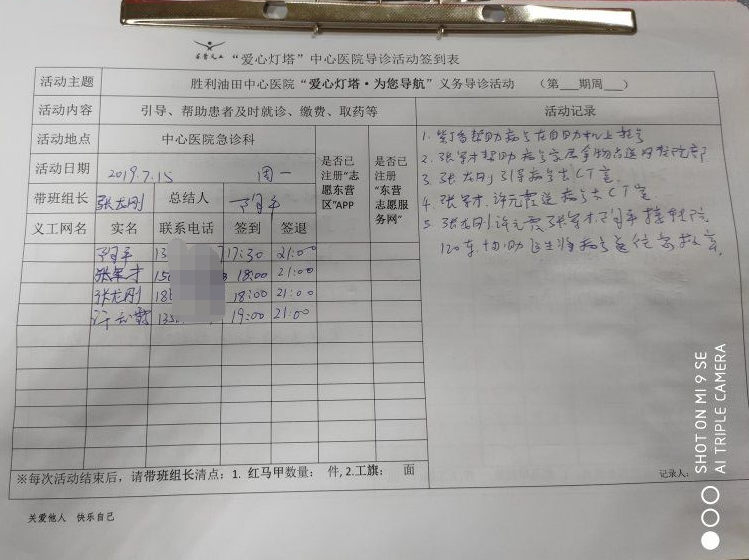 “爱心灯塔”中心医院导诊活动签到表
活动主题 胜利油田中心医院“爱心灯塔·为您导航”义务导诊活动 (第___期周___)
活动内容 引导、帮助患者及时就诊、缴费、取药等 活动记录
活动地点 中心医院急诊科
活动日期 2019.7.15 周一
是否已注册“志愿东营区”APP
是否已注册“东营志愿服务网”
带班组长 张龙刚 总结人
义工网名 实名 联系电话 签到 签退
13 17:30 21:00
张军才 150 18:00 21:00
张龙刚 18 18:00 21:00
许元霞 135 19:00 21:00
1. 帮助病号在自助机上挂号
2. 张军才帮助病号家属拿物品送到住院部
3. 张龙刚引导病号去CT室
4. 张军才.许元霞送病号去CT室
5. 张龙刚许元霞张军才
120车.协助医生将病号送往急救室.
※每次活动结束后，请带班组长清点：1. 红马甲数量： 件, 2.工旗： 面
记录人：
关爱他人 快乐自己
SHOT ON MI 9 SE
AI TRIPLE CAMERA